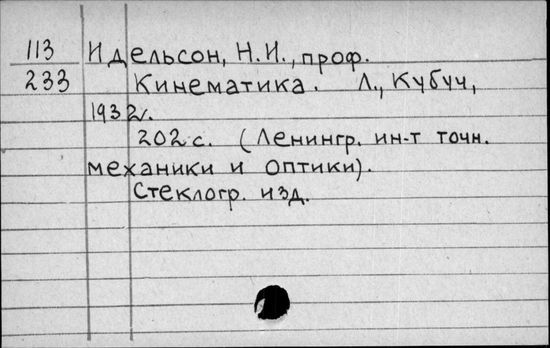 113 Идельсон, Н.И., проф.
233 Кинематика. Л., Кубуч,
1932г.
202 с. (Ленингр. ин-т точн.
механики и оптики).
Стеклогр. изд.